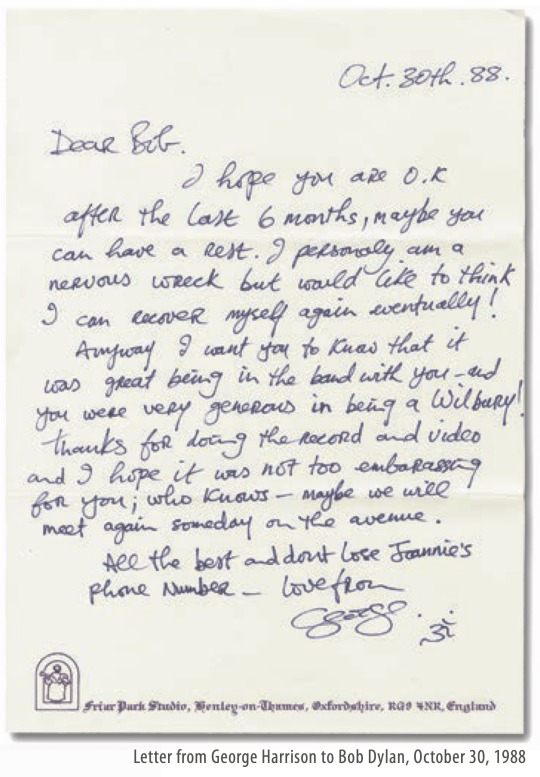 Oct. 30th. 88.
Dear Bob.
I hope you are O.K
after the last 6 months, maybe you
can have a rest. I personaly am a
nervous wreck but would like to think
I can recover myself again eventually!
Anyway I want you to know that it
was great being in the band with you – and
you were very generous in being a Wilbury!
Thanks for doing the record and video
and I hope it was not too embarassing
for you; who knows – maybe we will
meet again someday on the avenue.
All the best and dont lose Joannie's
phone number – love from
George. ॐ
Friar Park Studio, Henley-on-Thames, Oxfordshire, RG9 4NR, England
Letter from George Harrison to Bob Dylan, October 30, 1988